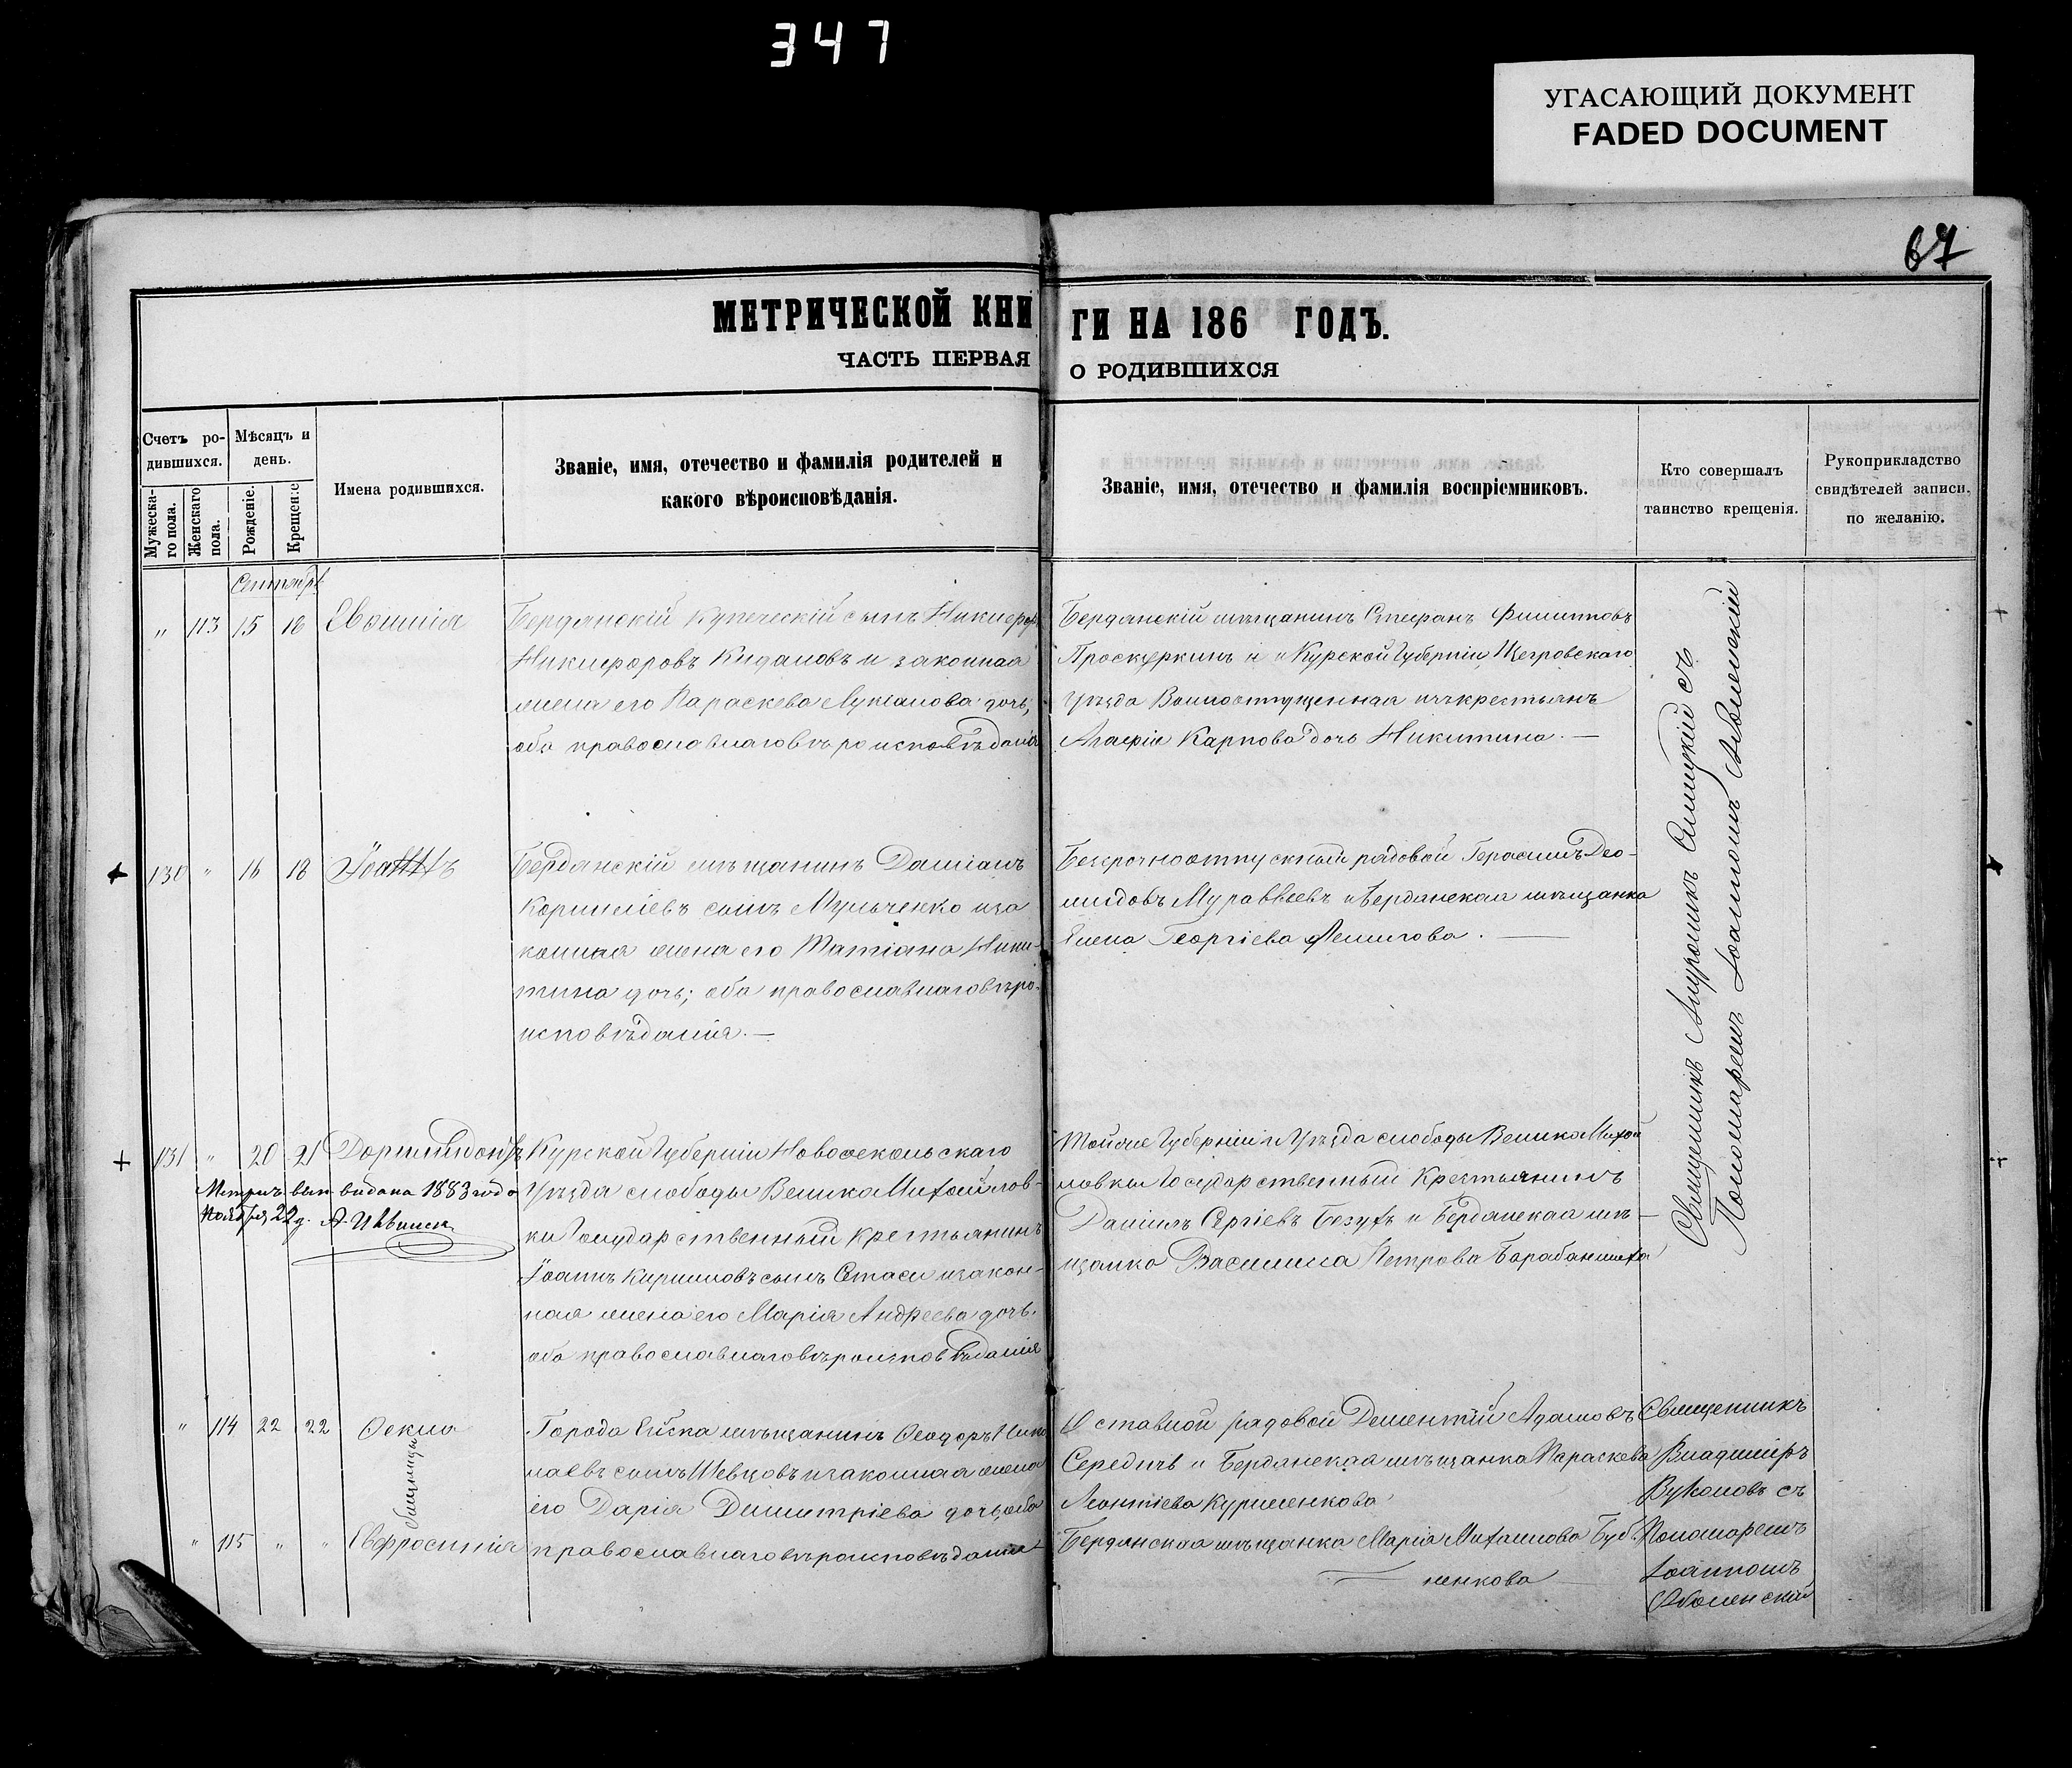 347
УГАСАЮЩИЙ ДОКУМЕНТ
FADED DOCUMENT
67
МЕТРИЧЕСКОЙ КНИГИ НА 186 ГОДЪ.
ЧАСТЬ ПЕРВАЯ О РОДИВШИХСЯ
Счетъ ро-
дившихся.
Мужеска-
го пола.
Женскаго
пола.
Мѣсяцъ и
день.
Рожденіе.
Крещеніе
Имена родившихся.
Званіе, имя, отечество и фамилія родителей и
какого вѣроисповѣданія.
Званіе, имя, отечество и фамилія воспріемниковъ.
Кто совершалъ
таинство крещенія.
Рукоприкладство
свидѣтелей записи,
по желанію.
Сентябрь
„ 113 15 18
Бердянскій купеческій сынъ Никифоръ
Никифоровъ и законная
жена его Параскева дочь,
оба православнаго вѣроисповѣданія
Бердянскій мѣщанинъ Стефанъ Филиповъ
Проскуркинъ и Курской Губерніи Щегровскаго
уѣзда Вольноотпущенная изъ крестьянъ
Агафія Карпова дочь Никитина. —
130 „ 16 18 Іоаннъ
Бердянскій мѣщанинъ Даміанъ
Корниліевъ сынъ Мульченко и за
конная жена его Татіана Ники-
тина дочь; оба православнаго вѣро-
исповѣданія. —
Безсрочноотпускный рядовой Герасимъ Део-
мидовъ Муравьевъ и Бердянская мѣщанка
Елена Георгіева
Священникъ Митрофанъ съ
Пономаремъ Іоанномъ Оболенскій
131 „ 20 21 Доримедонтъ
Метрич. вып. видана 1883 года
Ноября 22 д.
Курской Губерніи Новооскольскаго
Уѣзда слободы Велика Михайлов-
ки Государственный Крестьянинъ
Іоаннъ Кириловъ сынъ и закон-
ная жена его Марія Андреева дочь.
оба православнаго вѣроисповѣданія
Тойже Губерніи и Уѣзда слободы Велика Михай
ловки Государственный Крестьянинъ
Даніилъ Сергіевъ Безухъ и Бердянская мѣ-
щанка Василиса Петрова
„ 114 22 22 Ѳекла
близницы
Города Ейска мѣщанинъ Ѳеодоръ Нико
лаевъ сынъ Шевцовъ и законная жена
его Дарія Димитріева дочь, оба
православнаго вѣроисповѣданія
Отставной рядовой Дементій Адамовъ
Середичъ и Бердянская мѣщанка Параскева
Леонтіева Курименкова
Священникъ
Владиміръ
Вуколовъ съ
Пономаремъ
Іоанномъ
Оболенскій
„ 115 „ „ Евфросинія
Бердянская мѣщанка Марія Михаилова
ненкова